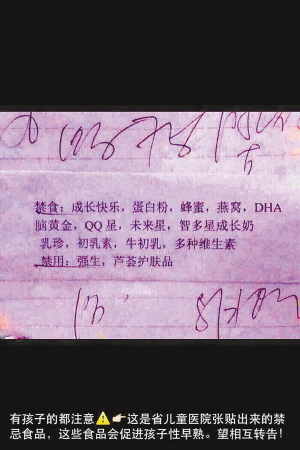 禁食：成长快乐，蛋白粉，蜂蜜，燕窝，DHA
脑黄金，QQ星，未来星，智多星成长奶
乳珍，初乳素，牛初乳，多种维生素
禁用：强生，芦荟护肤品
有孩子的都注意⚠️👉🏻这是省儿童医院张贴出来的禁
忌食品，这些食品会促进孩子性早熟。望相互转告！